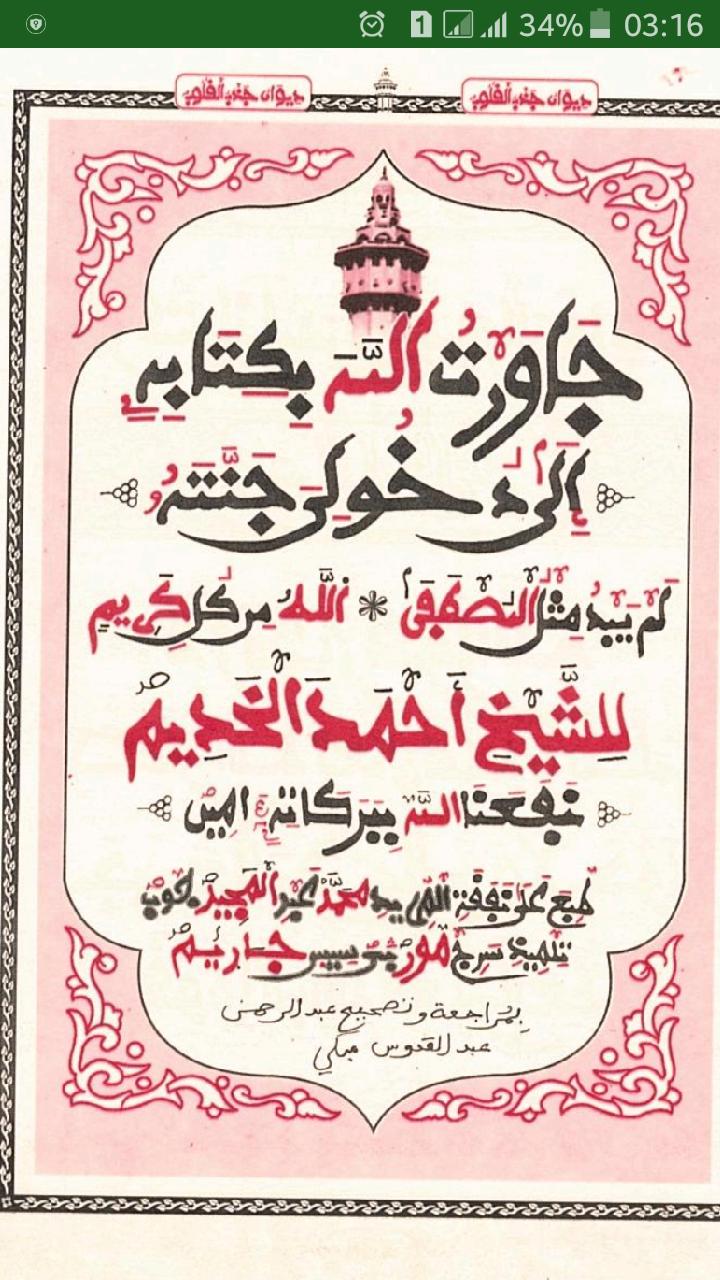 1 34% 03:16
ديوان جذب القلوب ديوان جذب القلوب
جاورت الله بكتابه
إلى دخولي جنته
لم يبد مثل المصطفى * لله من كل كريم
للشيخ أحمد الخديم
نفعنا الله ببركاته امين
طبع على نفقة المريد محمد عبد المجيد
تلميذ سرج مور سيس
بمراجعة وتصحيح عبد الرحمن
عبد القدوس مبكي